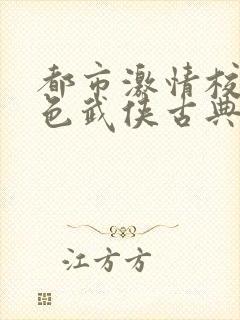 都市激情校
色武侠古典
江方方